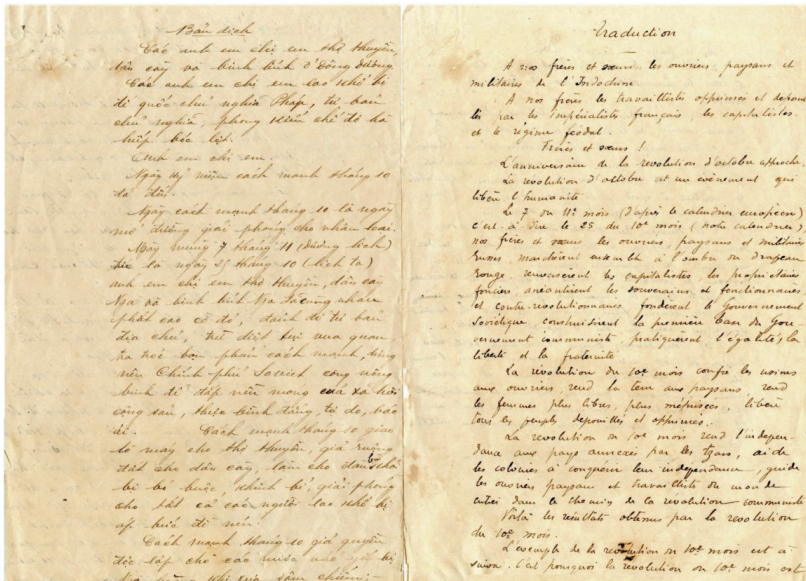 Bản dịch
Các anh em chị em thợ thuyền,
dân cày và binh lính ở Đông Dương
Các anh em chị em lao khổ bị
đế quốc chủ nghĩa Pháp, tư bản
chủ nghĩa, phong kiến chế độ hà
hiếp bóc lột.
Anh em chị em.
Ngày kỷ niệm cách mạnh tháng 10
đã đến.
Ngày cách mạnh tháng 10 là ngày
mở đường giải phóng cho nhân loại.
Mấy mùng 7 tháng 11 (dương lịch)
tức là ngày 25 tháng 10 (lịch ta)
anh em chị em thợ thuyền, dân cày
Nga và binh lính Nga đã cùng nhau
phất cao cờ đỏ, đánh đổ tư bản
địa chủ, trừ diệt vua quan
phản cách mạnh, dựng
nên Chính phủ Soviet công nông
binh để đắp nền móng xã hội
cộng sản, thực bình đẳng, tự do, bác
ái. Cách mạnh tháng 10 giao
lò máy cho thợ thuyền, giả ruộng
đất cho dân cày, làm cho đàn bà khỏi
bị bó buộc, khinh bỉ, giải phóng
cho tất cả các người lao khổ bị
áp bức đè nén.
Cách mạnh tháng 10 giả quyền
độc lập cho các nước
Traduction
A nos frères et sœurs les ouvriers, paysans et
militaires de l'Indochine.
A nos frères les travaillistes opprimés et dépouil
lés par les impérialistes français, les capitalistes
et le régime féodal.
Frères et sœurs !
L'anniversaire de la revolution d'octobre approche.
La revolution d'octobre est un évènement qui
libère l'humanité
Le 7 du 11e mois (d'après le calendrier européen)
c'est-à-dire le 25 du 10e mois (notre calendrier),
nos frères et sœurs les ouvriers, paysans et militaires
russes marchèrent ensemble à l'ombre du drapeau
rouge, renversèrent les capitalistes, les propriétaires
fonciers anéantirent les souverains et fonctionnaires
et contre-revolutionnaires fondèrent le Gouvernement
Soviétique construisirent la première base du Gou
vernement communiste pratiquèrent l'égalité, la
liberté et la fraternité
La revolution du 10e mois confie les usines
aux ouvriers, rend la terre aux paysans rend
les femmes plus libres, plus méprisées, libère
tous les peuples dépouillés et opprimés.
La revolution du 10e mois rend l'indépen-
dance aux pays annexés par les tzars, aide
les colonies à conquérir leur indépendance, guide
les ouvriers paysans et travaillistes du monde
entier dans le chemin de la revolution communiste
Voilà les résultats obtenus par la revolution
du 10e mois.
L'exemple de la revolution du 10e mois est à
suivre. C'est pourquoi la revolution du 10e mois est